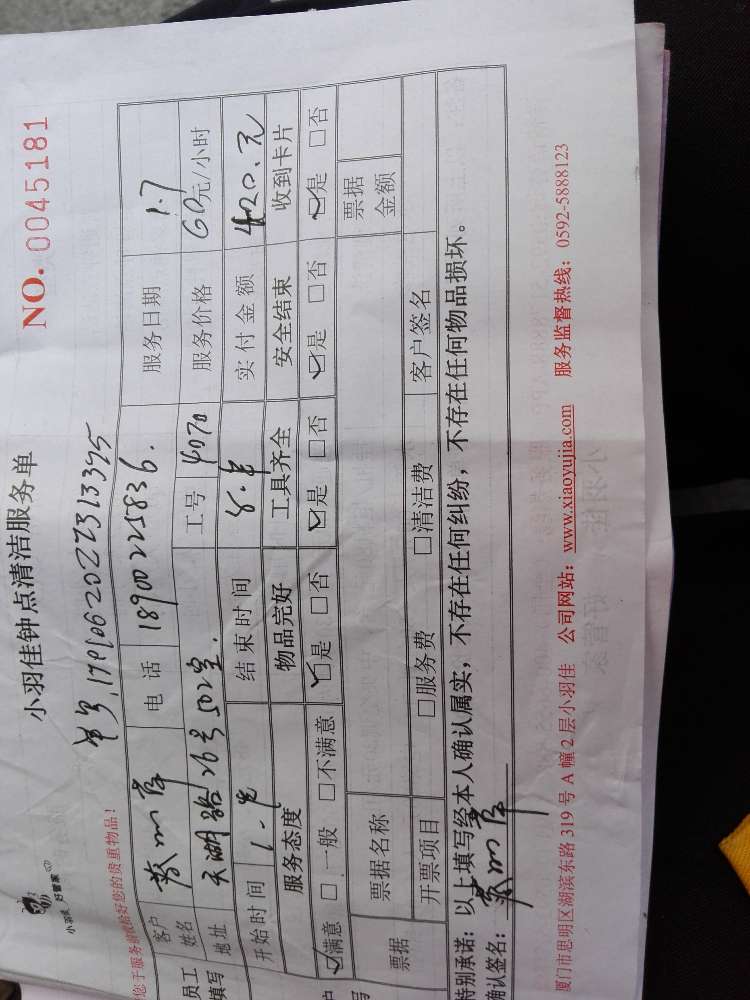 小羽佳 好管家
小羽佳钟点清洁服务单
NO. 0045181
单号,1701062022313395
您于服务前收拾好您的贵重物品!
员工填写
客户姓名 电话 18900225836. 服务日期 1.7
地址 天湖路26号502室. 工号 4070 服务价格 60元/小时
开始时间 1.半 结束时间 8.半 实付金额 420.元
服务态度 物品完好 工具齐全 安全结束 收到卡片
☑满意 □一般 □不满意 ☑是 □否 ☑是 □否 ☑是 □否 ☑是 □否
票据 票据名称 票据金额
开票项目 □服务费 □清洁费 客户签名
特别承诺:以上填写经本人确认属实,不存在任何纠纷,不存在任何物品损坏。
确认签名:
厦门市思明区湖滨东路319号A幢2层小羽佳 公司网站:www.xiaoyujia.com 服务监督热线:0592-5888123